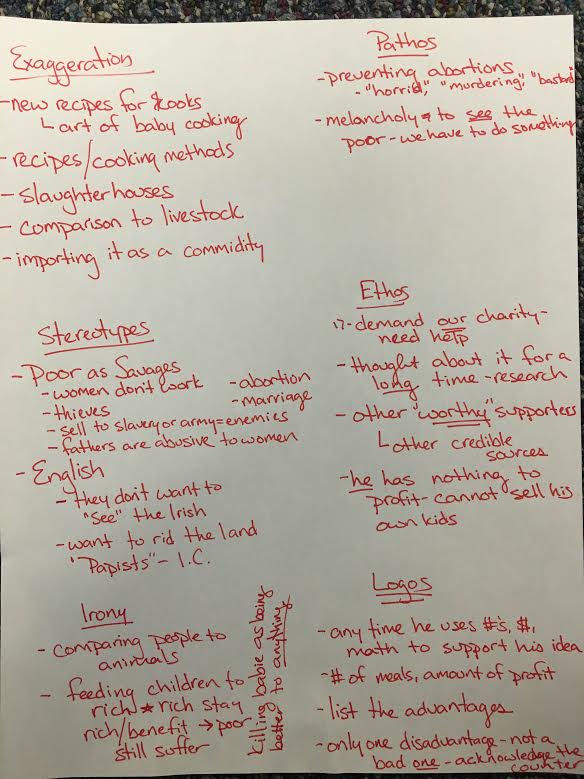 Exaggeration
- new recipes for cooks
└ art of baby cooking
- recipes/cooking methods
- slaughterhouses
- comparison to livestock
- importing it as a commidity
Pathos
- preventing abortions
- "horrid," "murdering," "bastard"
- melancholy → to see the
poor - we have to do something
Stereotypes
- Poor as Savages
- women don't work
- abortion
- thieves
- marriage
- sell to slavery or army = enemies
- fathers are abusive to women
- English
- they don't want to
"see" the Irish
- want to rid the land
"Papists" - I.C.
Ethos
- demand our charity -
need help
- thought about it for a
long time - research
- other "worthy" supporters
└ other credible
sources
- he has nothing to
profit - cannot sell his
own kids
Irony
- comparing people to
animals
- feeding children to
rich * rich stay
rich/benefit → poor
still suffer
Killing babie as being
better to anything
Logos
- any time he uses #'s, $,
math to support his idea
- # of meals, amount of profit
- list the advantages
- only one disadvantage - not a
bad one - acknowledge the
counter